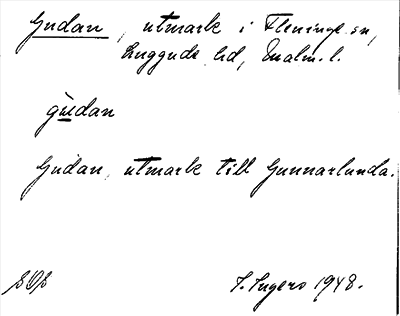 Gudan, utmark i Fleninge sn,
Luggude hd, Malm. l.
gu̲dan
Gudan, utmark till Gunnarlunda.
S. Ingers 1948.